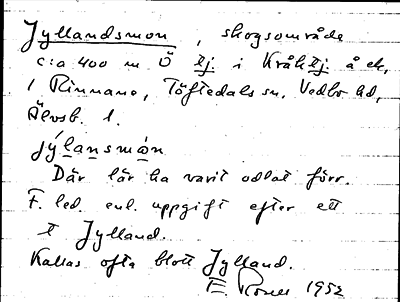 Jyllandsmon, skogsområde
c:a 400 m Ö tj. i Kråktj. å ek.
1 Rinnane, Töftedals sn, Vedbo hd,
Älvsb. l.
jýlansmán
Där lär ha varit odlat förr.
F. led. enl. uppgift efter ett
t Jylland.
Kallas ofta blott Jylland.
1952